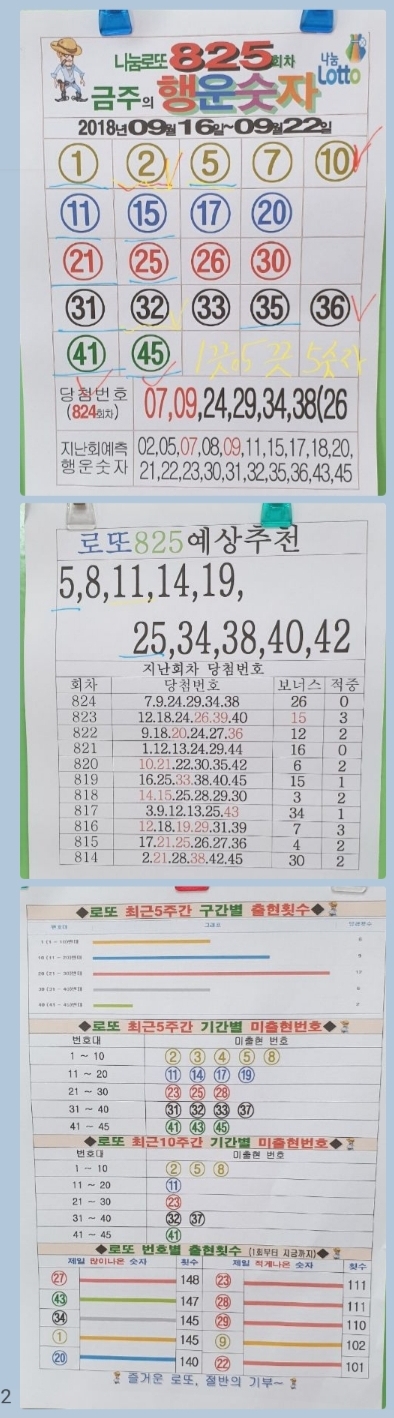 나눔로또 825회차
나눔
Lotto
금주의 행운숫자
2018년09월16일~09월22일
1 2 5 7 10
11 15 17 20
21 25 26 30
31 32 33 35 36
41 45
당첨번호
(824회차)
07,09,24,29,34,38(26
지난회예측
행운숫자
02,05,07,08,09,11,15,17,18,20,
21,22,23,30,31,32,35,36,43,45
로또825예상추천
5,8,11,14,19,
25,34,38,40,42
지난회차 당첨번호
회차 당첨번호 보너스 적중
824 7.9.24.29.34.38 26 0
823 12.18.24.26.39.40 15 3
822 9.18.20.24.27.36 12 2
821 1.12.13.24.29.44 16 0
820 10.21.22.30.35.42 6 2
819 16.25.33.38.40.45 15 1
818 14.15.25.28.29.30 3 2
817 3.9.12.13.25.43 34 1
816 12.18.19.29.31.39 7 3
815 17.21.25.26.27.36 4 2
814 2.21.28.38.42.45 30 2
◆로또 최근5주간 구간별 출현횟수◆
번호대 그래프
◆로또 최근5주간 기간별 미출현번호◆
번호대 미출현 번호
1 ~ 10 2 3 4 5 8
11 ~ 20 11 14 17 19
21 ~ 30 23 25 28
31 ~ 40 31 32 33 37
41 ~ 45 41 43 45
◆로또 최근10주간 기간별 미출현번호◆
번호대 미출현 번호
1 ~ 10 2 5 8
11 ~ 20 11
21 ~ 30 23
31 ~ 40 32 37
41 ~ 45 41
◆로또 번호별 출현횟수 (1회부터 지금까지)◆
제일 많이나온 숫자 횟수 제일 적게나온 숫자 횟수
27 148 23 111
43 147 28 111
34 145 29 110
1 145 9 102
20 140 22 101
즐거운 로또, 절반의 기부~
2